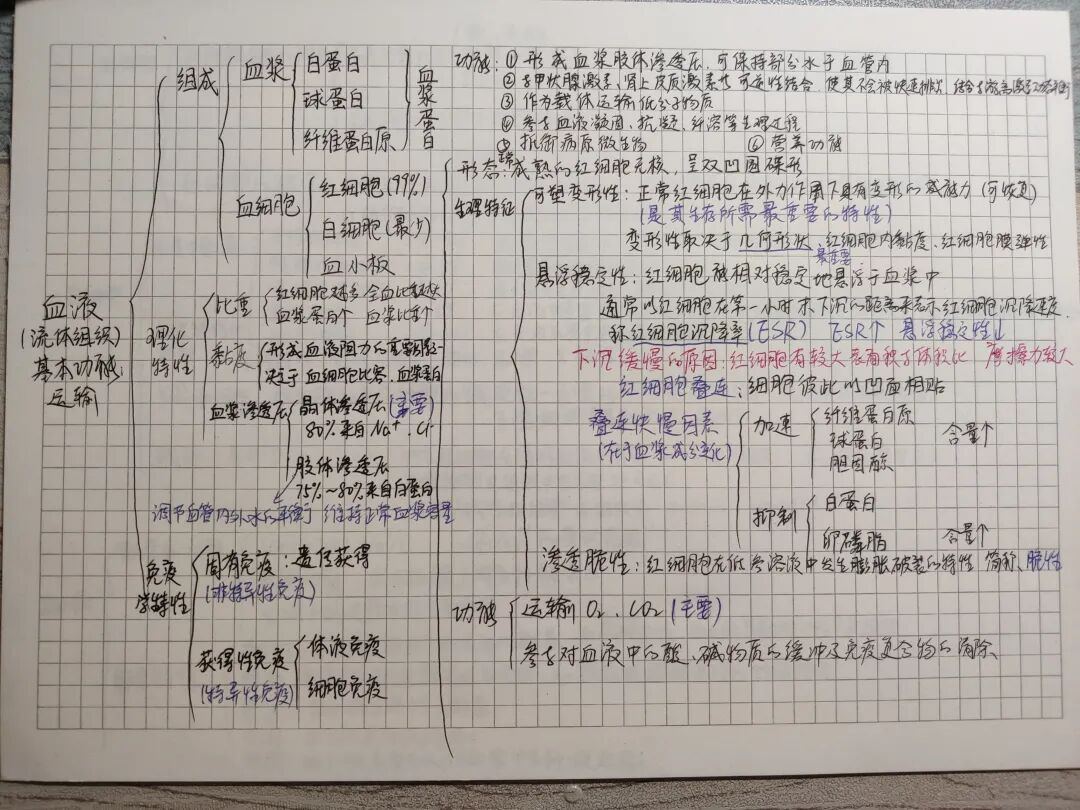 血液
(流体组织)
基本功能:
运输
组成
血浆
白蛋白
球蛋白
纤维蛋白原
血浆蛋白
血细胞
红细胞(99%)
白细胞(最少)
血小板
理化特性
比重
红细胞越多 全血比重越大
血浆蛋白个 血浆比重个
黏度
形成血液阻力的重要因素之一
决定于血细胞比容、血浆蛋白
血浆渗透压
晶体渗透压(主要)
80%来自Na⁺、Cl⁻
胶体渗透压
75%~80%来自白蛋白
调节血管内外水的平衡 维持正常血浆容量
免疫学特性
固有免疫:遗传获得
(非特异性免疫)
获得性免疫
(特异性免疫)
体液免疫
细胞免疫
功能:① 形成血浆胶体渗透压,可保持部分水于血管内
② 与甲状腺激素、肾上腺皮质激素等可逆性结合,使其不会被快速排出,
③ 作为载体运输低分子物质
④ 参与血液凝固、抗凝、纤溶等生理过程
⑤ 抵御病原微生物 ⑥ 营养功能
形态:正常成熟的红细胞无核,呈双凹圆碟形
生理特征
可塑变形性:正常红细胞在外力作用下具有变形的能力(可恢复)
(是其生存所需最重要的特性)
变形性取决于几何形状、红细胞内黏度、红细胞膜弹性
最重要
悬浮稳定性:红细胞能相对稳定地悬浮于血浆中
通常以红细胞在第一小时末下沉的距离来表示红细胞沉降速度
称红细胞沉降率(ESR) ESR↑ 悬浮稳定性↓
下沉缓慢的原因:红细胞有较大表面积与体积比 摩擦力较大
红细胞叠连:细胞彼此以凹面相贴
叠连快慢因素
(在于血浆成分变化)
加速
纤维蛋白原
球蛋白
胆固醇
含量↑
抑制
白蛋白
卵磷脂
含量↑
渗透脆性:红细胞在低渗溶液中发生膨胀破裂的特性 简称、脆性
功能
运输O₂、CO₂(主要)
参与对血液中的酸、碱物质的缓冲及免疫复合物的清除